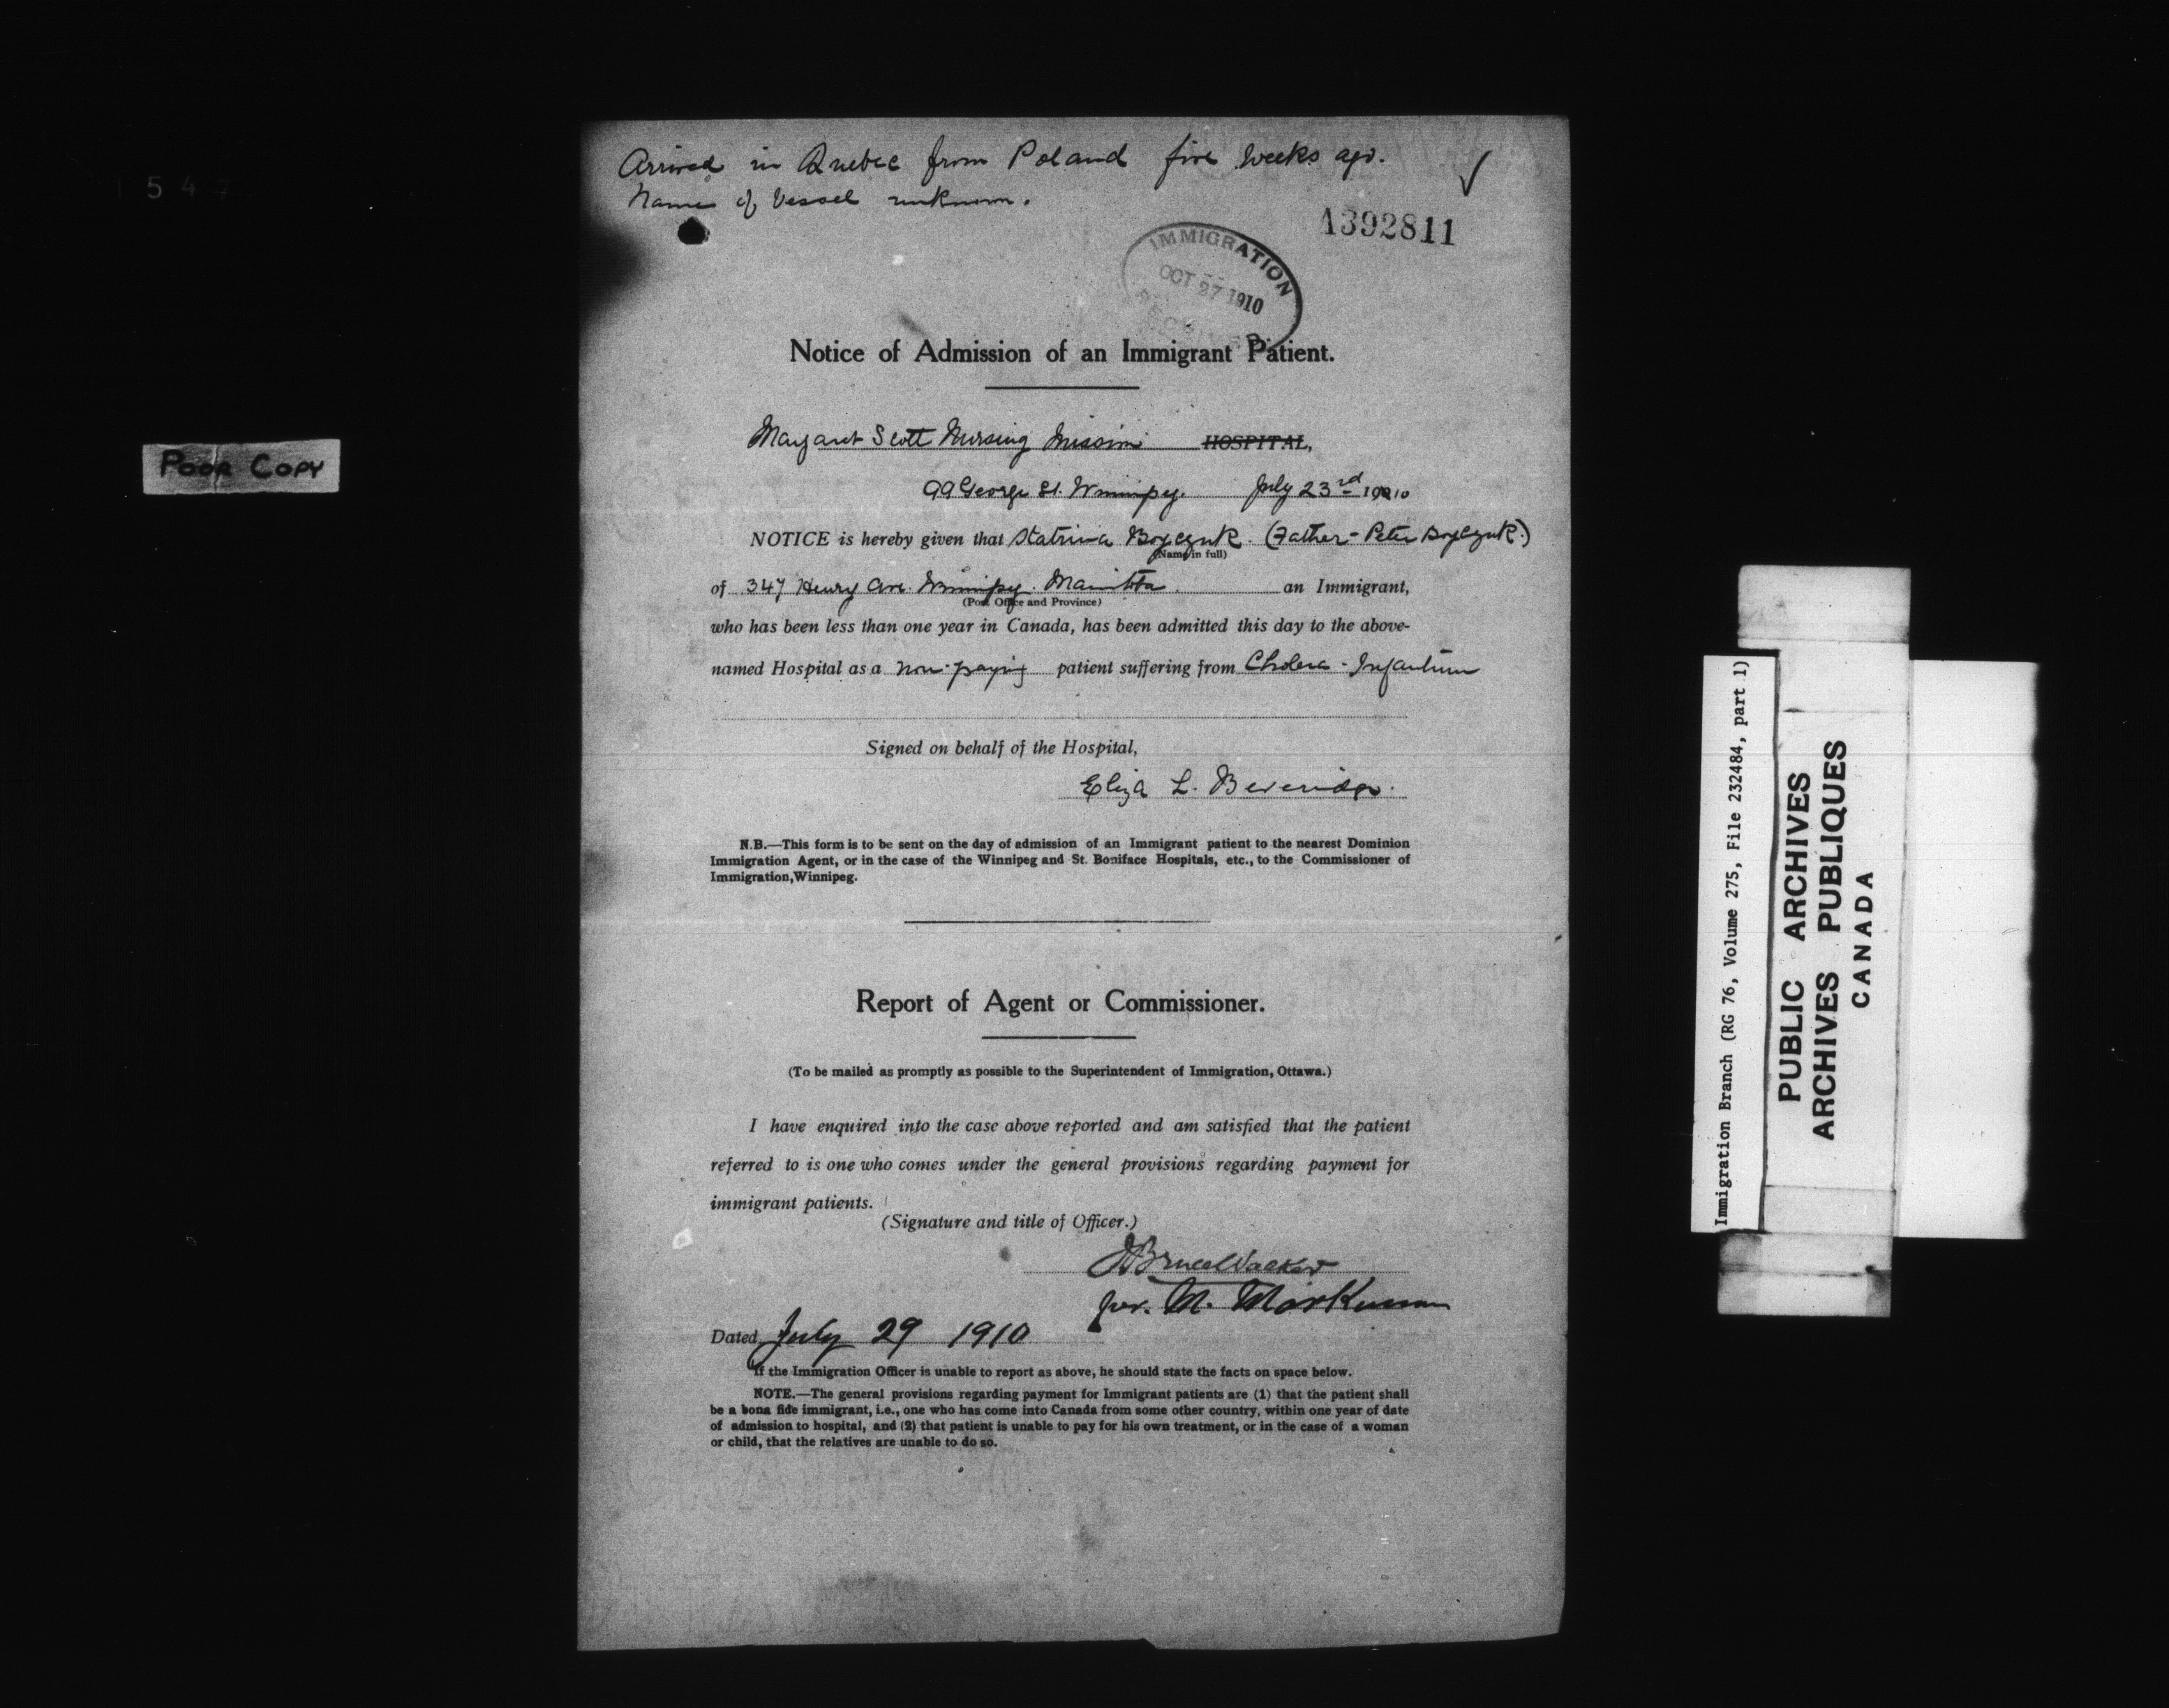 Arrived in Quebec from Poland five weeks ago.
Name of Vessel unknown.
1392811
IMMIGRATION
OCT 27 1910
RECEIVED
Notice of Admission of an Immigrant Patient.
Margaret Scott Nursing Mission HOSPITAL,
99 George St. Winnipeg. July 23rd 1910
NOTICE is hereby given that Katrina Boyczuk. (Father - Peter Boyczuk.)
(Name in full)
of 347 Henry Ave. Winnipeg. Manitoba. an Immigrant,
(Post Office and Province)
who has been less than one year in Canada, has been admitted this day to the above-
named Hospital as a non-paying patient suffering from Cholera-Infantum
Signed on behalf of the Hospital,
Eliza L. Beveridge.
N.B.—This form is to be sent on the day of admission of an Immigrant patient to the nearest Dominion
Immigration Agent, or in the case of the Winnipeg and St. Boniface Hospitals, etc., to the Commissioner of
Immigration, Winnipeg.
Report of Agent or Commissioner.
(To be mailed as promptly as possible to the Superintendent of Immigration, Ottawa.)
I have enquired into the case above reported and am satisfied that the patient
referred to is one who comes under the general provisions regarding payment for
immigrant patients.
(Signature and title of Officer.)
J Bruce Walker
per. M.
Dated July 29 1910
If the Immigration Officer is unable to report as above, he should state the facts on space below.
NOTE.—The general provisions regarding payment for Immigrant patients are (1) that the patient shall
be a bona fide immigrant, i.e., one who has come into Canada from some other country, within one year of date
of admission to hospital, and (2) that patient is unable to pay for his own treatment, or in the case of a woman
or child, that the relatives are unable to do so.
POOR COPY
Immigration Branch (RG 76, Volume 275, File 232484, part 1)
PUBLIC ARCHIVES
ARCHIVES PUBLIQUES
CANADA